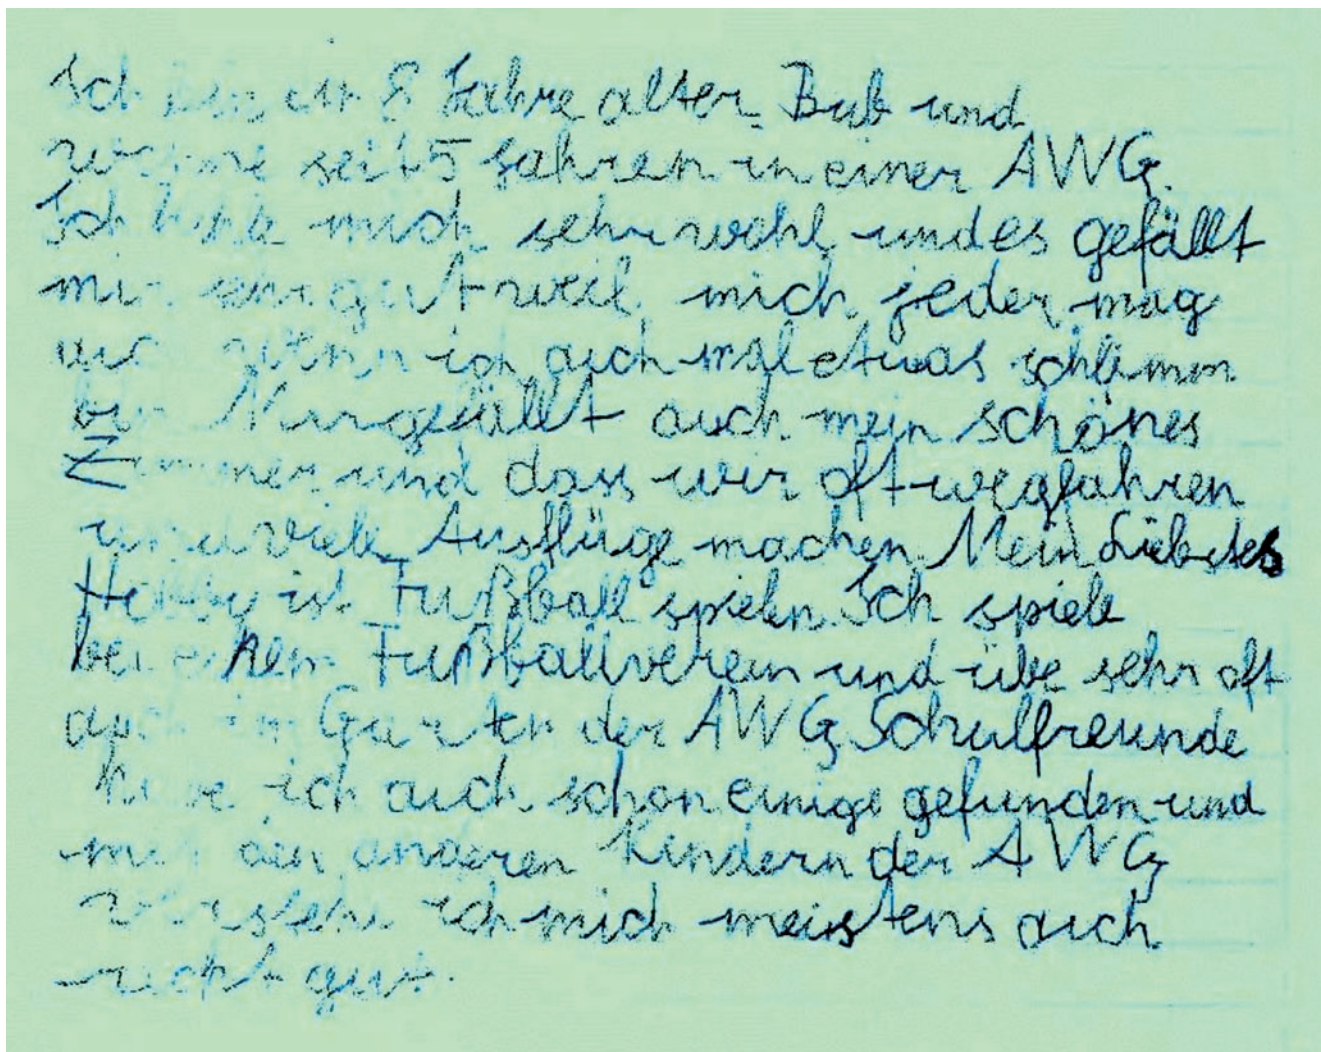 Ich bin ein 8 Jahre alter Bub und
wohne seit 5 Jahren in einer AWG.
Ich fühle mich sehr wohl und es gefällt
mir sehr gut weil mich jeder mag
auch wenn ich auch mal etwas schlimm
bin Mir gefällt auch mein schönes
Zimmer und dass wir oft wegfahren
und viele Ausflüge machen. Mein Liebstes
Hobby ist Fußball spielen. Ich spiele
bei einem Fußballverein und übe sehr oft
auch im Garten der AWG. Schulfreunde
habe ich auch schon einige gefunden und
mit den anderen Kindern der AWG
verstehe ich mich meistens auch
recht gut.